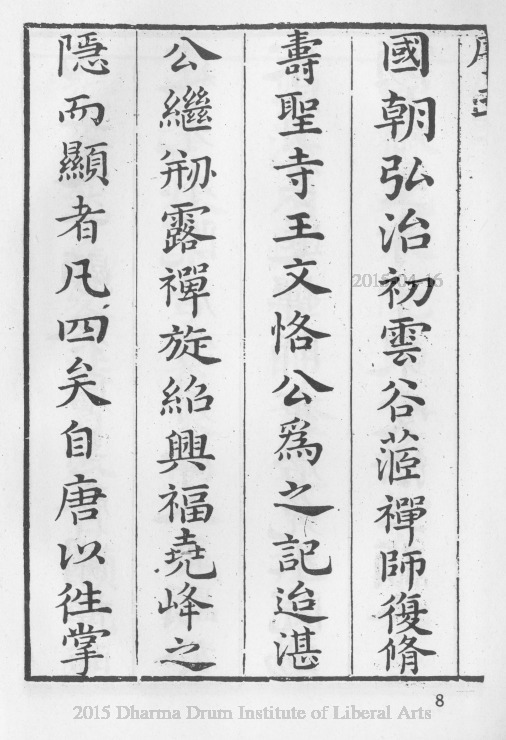 國朝弘治初雲谷禪師復脩
壽聖寺王文恪公爲之記迨湛
公繼剏露禪旋紹興福堯峰之
隱而顯者凡四矣自唐以徃掌
2015-04-16
8
2015 Dharma Drum Institute of Liberal Arts